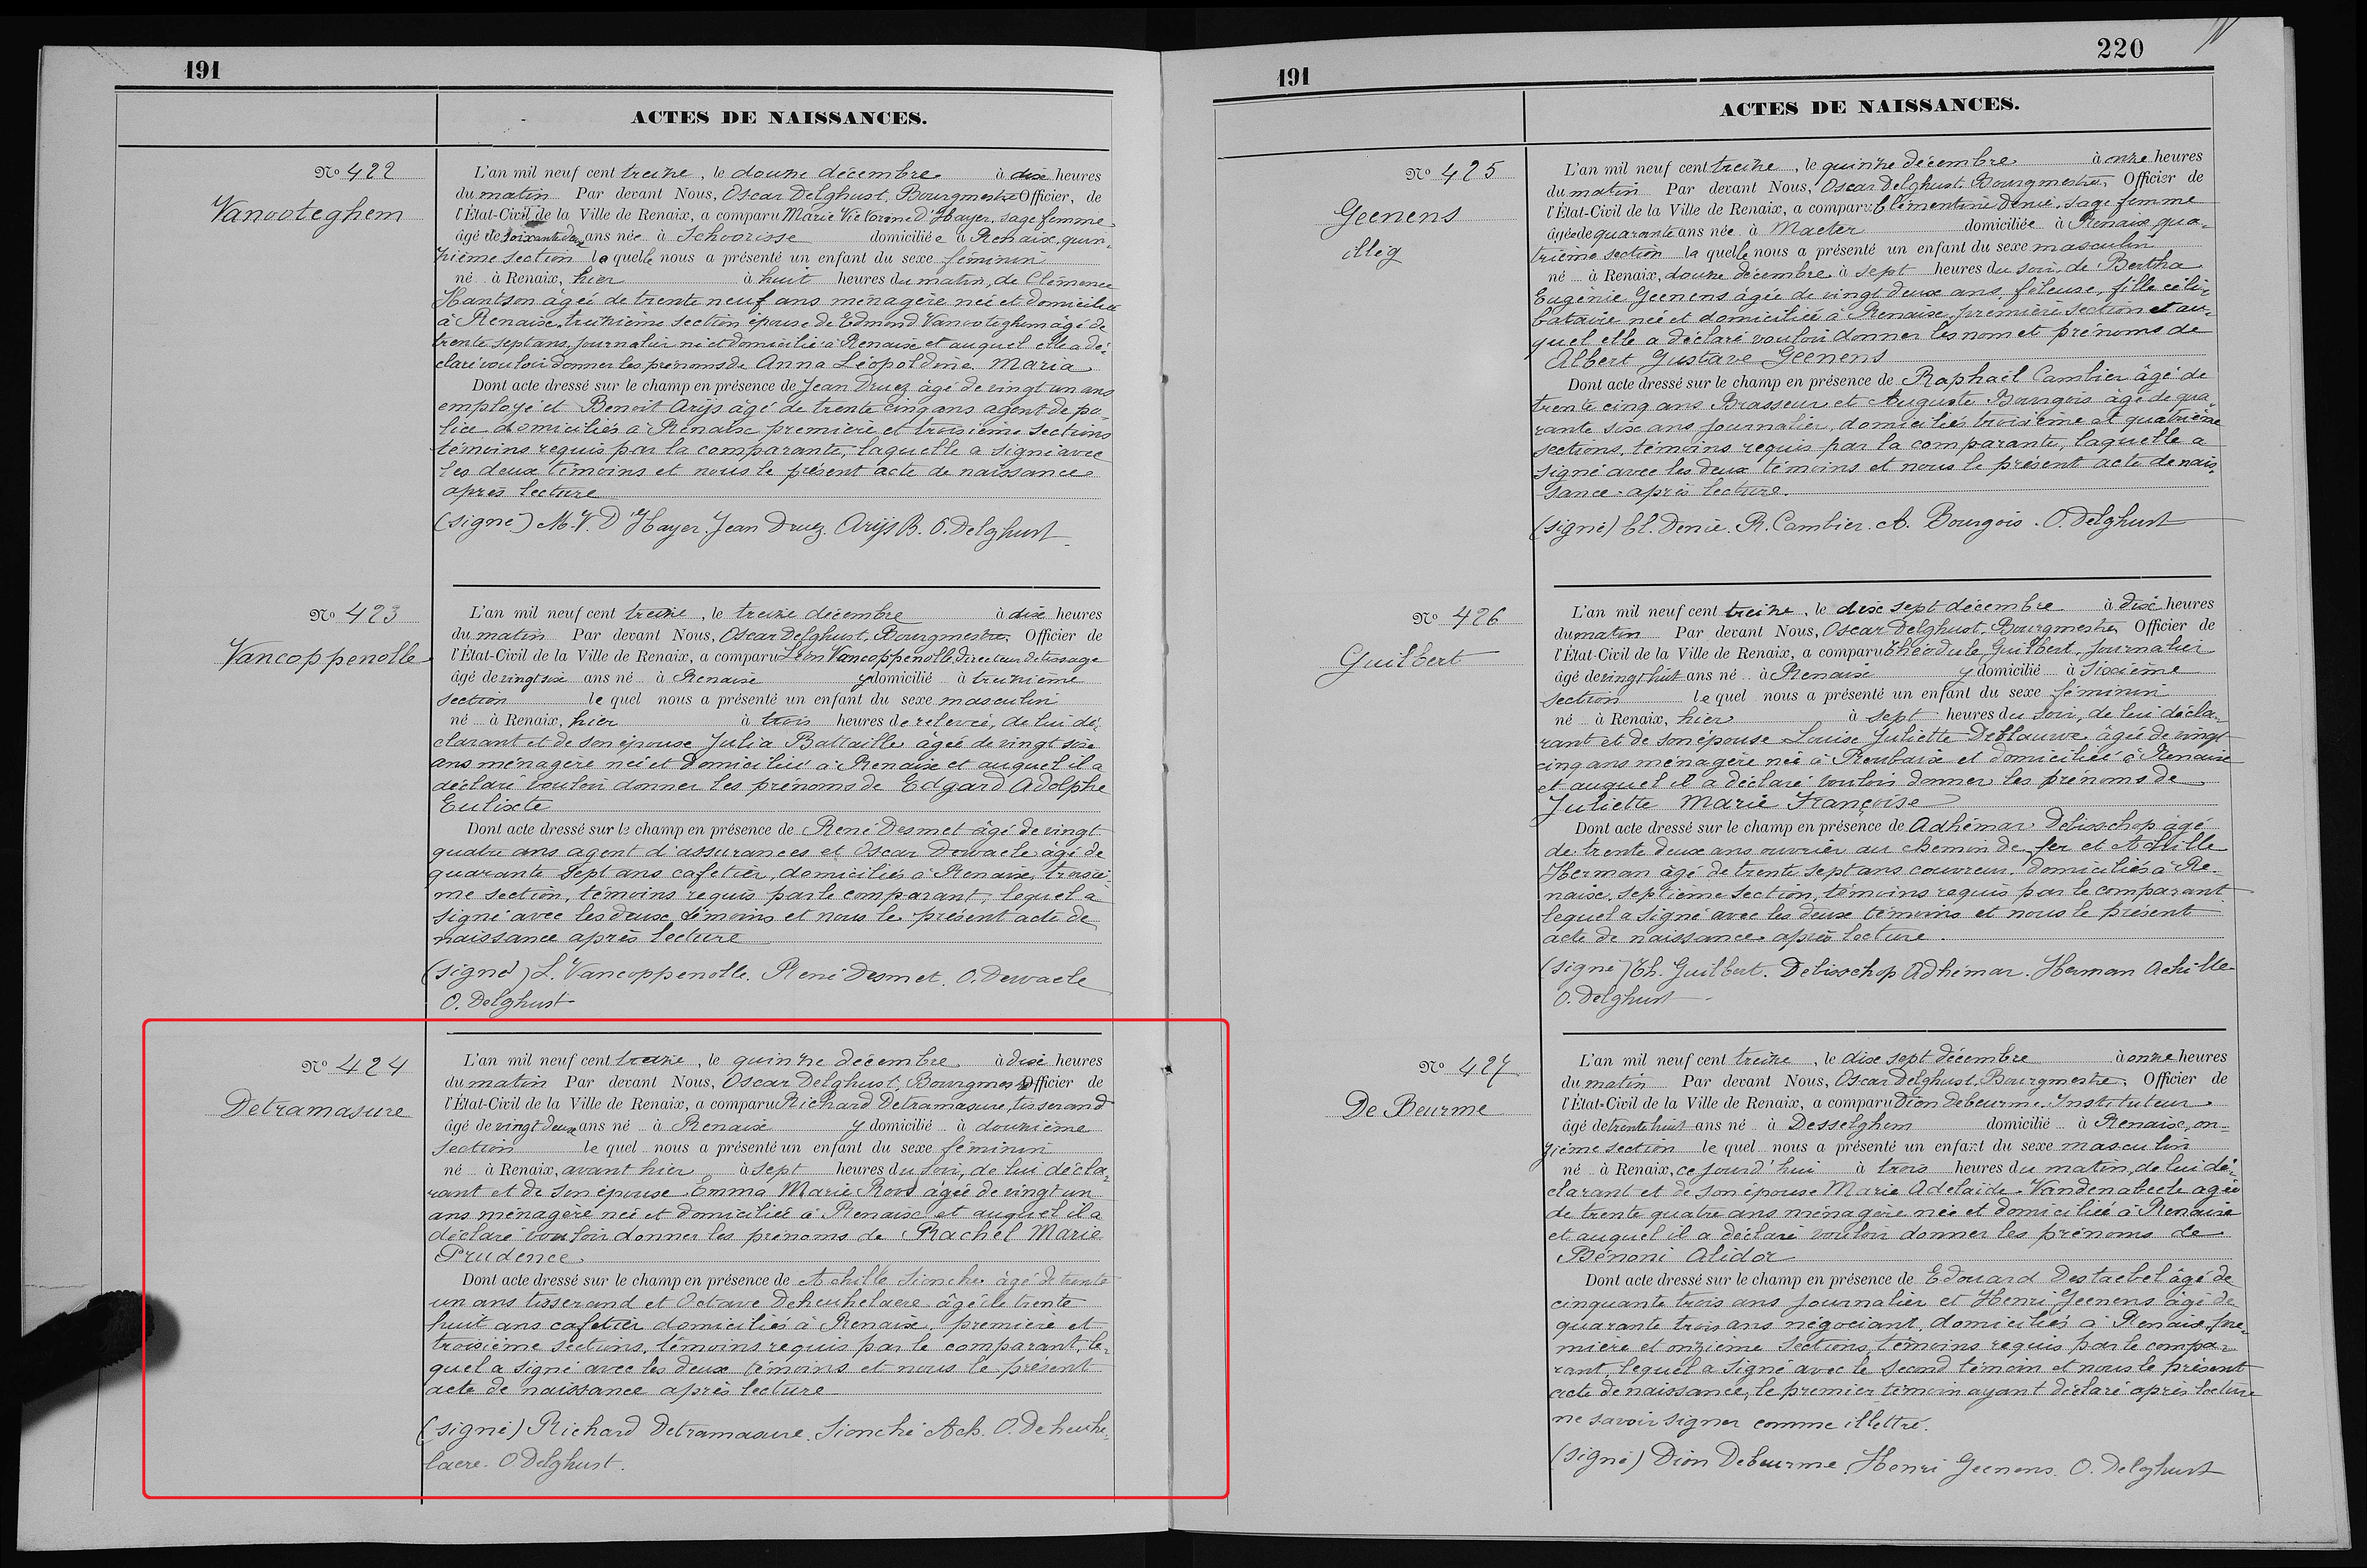 191
ACTES DE NAISSANCES.
Nº 422
Vanooteghem
L'an mil neuf cent treize, le douze décembre à dix heures
du matin Par devant Nous, Oscar Delghust, Bourgmestre Officier, de
l'État-Civil de la Ville de Renaix, a comparu Marie Victorine D'Hayer, sage femme
âgé de soixante deux ans née à Schoorisse domiciliée à Renaix, quin-
zième section laquelle nous a présenté un enfant du sexe féminin
né à Renaix, hier à huit heures du matin, de Clémence
Hantson âgée de trente neuf ans ménagère née et domiciliée
à Renaix, treizième section épouse de Edmond Vanooteghem âgé de
trente sept ans, journalier né et domicilié à Renaix et auquel elle a dé-
claré vouloir donner les prénoms de Anna Léopoldine Maria
Dont acte dressé sur le champ en présence de Jean Druez âgé de vingt un ans
employé et Benoit Arijs âgé de trente cinq ans agent de po-
lice domiciliés à Renaix première et troisième sections
témoins requis par la comparante, laquelle a signé avec
les deux témoins et nous le présent acte de naissance
après lecture
(signé) M. V. D'Hayer. Jean Druez. Arijs B. O. Delghust
Nº 423
Vancoppenolle
L'an mil neuf cent treize, le treize décembre à dix heures
du matin Par devant Nous, Oscar Delghust, Bourgmestre, Officier de
l'État-Civil de la Ville de Renaix, a comparu Léon Vancoppenolle, directeur de tissage
âgé de vingt six ans né à Renaix y domicilié à treizième
section lequel nous a présenté un enfant du sexe masculin
né à Renaix, hier à trois heures de relevée, de lui dé-
clarant et de son épouse Julia Battaille âgée de vingt six
ans ménagère née et domiciliée à Renaix et auquel il a
déclaré vouloir donner les prénoms de Edgard Adolphe
Eulixte
Dont acte dressé sur le champ en présence de René Desmet âgé de vingt
quatre ans agent d'assurances et Oscar Dewaele âgé de
quarante sept ans cafetier, domiciliés à Renaix, troisiè-
me section, témoins requis par le comparant, lequel a
signé avec les deux témoins et nous le présent acte de
naissance après lecture
(signé) L. Vancoppenolle. René Desmet. O. Dewaele
O. Delghust
Nº 424
Detramasure
L'an mil neuf cent treize, le quinze décembre à dix heures
du matin Par devant Nous, Oscar Delghust, Bourgmestre Officier de
l'État-Civil de la Ville de Renaix, a comparu Richard Detramasure, tisserand
âgé de vingt deux ans né à Renaix y domicilié à douzième
section lequel nous a présenté un enfant du sexe féminin
né à Renaix, avant hier à sept heures du soir, de lui décla-
rant et de son épouse Emma Marie Roos âgée de vingt un
ans ménagère née et domiciliée à Renaix et auquel il a
déclaré vouloir donner les prénoms de Rachel Marie
Prudence
Dont acte dressé sur le champ en présence de Achille Sionche âgé de trente
un ans tisserand et Octave Deheuhelaere âgé de trente
huit ans cafetier domiciliés à Renaix, première et
troisième sections, témoins requis par le comparant, le-
quel a signé avec les deux témoins et nous le présent
acte de naissance après lecture
(signé) Richard Detramasure. Sionche Ach. O. Deheuhe-
laere. O. Delghust.
220
191
ACTES DE NAISSANCES.
Nº 425
Geenens
illég
L'an mil neuf cent treize, le quinze décembre à onze heures
du matin Par devant Nous, Oscar Delghust, Bourgmestre, Officier de
l'État-Civil de la Ville de Renaix, a comparu Clémentine Denie, sage femme
âgée de quarante ans née à Maeter domiciliée à Renaix, qua-
trième section laquelle nous a présenté un enfant du sexe masculin
né à Renaix, douze décembre à sept heures du soir, de Bertha
Eugénie Geenens âgée de vingt deux ans, fileuse, fille céli-
bataire née et domiciliée à Renaix, première section et au-
quel elle a déclaré vouloir donner les nom et prénoms de
Albert Gustave Geenens
Dont acte dressé sur le champ en présence de Raphaël Cambier âgé de
trente cinq ans Brasseur et Auguste Bourgois âgé de qua-
rante six ans journalier, domiciliés troisième et quatrième
sections, témoins requis par la comparante, laquelle a
signé avec les deux témoins et nous le présent acte de nais-
sance après lecture.
(signé) Cl. Denie. R. Cambier. A. Bourgois. O. Delghust
Nº 426
Guilbert
L'an mil neuf cent treize, le dix sept décembre à dix heures
du matin Par devant Nous, Oscar Delghust, Bourgmestre, Officier de
l'État-Civil de la Ville de Renaix, a comparu Théodule Guilbert, journalier
âgé de vingt huit ans né à Renaix y domicilié à sixième
section lequel nous a présenté un enfant du sexe féminin
né à Renaix, hier à sept heures du soir, de lui décla-
rant et de son épouse Louise Juliette Deblauwe âgée de vingt
cinq ans ménagère née à Roubaix et domiciliée à Renaix
et auquel il a déclaré vouloir donner les prénoms de
Juliette Marie Françoise
Dont acte dressé sur le champ en présence de Adhémar Debisschop âgé
de trente deux ans ouvrier au chemin de fer et Achille
Herman âgé de trente sept ans couvreur domiciliés à Re-
naix, septième section, témoins requis par le comparant
lequel a signé avec les deux témoins et nous le présent
acte de naissance après lecture.
(signé) Th. Guilbert. Debisschop Adhémar. Herman Achille
O. Delghust
Nº 427
De Beurme
L'an mil neuf cent treize, le dix sept décembre à onze heures
du matin Par devant Nous, Oscar Delghust, Bourgmestre, Officier de
l'État-Civil de la Ville de Renaix, a comparu Dion Debeurme, Instituteur
âgé de trente huit ans né à Desselghem domicilié à Renaix, on-
zième section lequel nous a présenté un enfant du sexe masculin
né à Renaix, ce jourd'hui à trois heures du matin, de lui dé-
clarant et de son épouse Marie Adelaïde Vandenabeele agée
de trente quatre ans ménagère née et domiciliée à Renaix
et auquel il a déclaré vouloir donner les prénoms de
Bénoni Alidor
Dont acte dressé sur le champ en présence de Edouard Destaebel âgé de
cinquante trois ans journalier et Henri Geenens âgé de
quarante trois ans négociant, domiciliés à Renaix, pre-
mière et onzième sections, témoins requis par le compa-
rant, lequel a signé avec le second témoin et nous le présent
acte de naissance, le premier témoin ayant déclaré après lecture
ne savoir signer comme illettré.
(signé) Dion Debeurme. Henri Geenens. O. Delghust